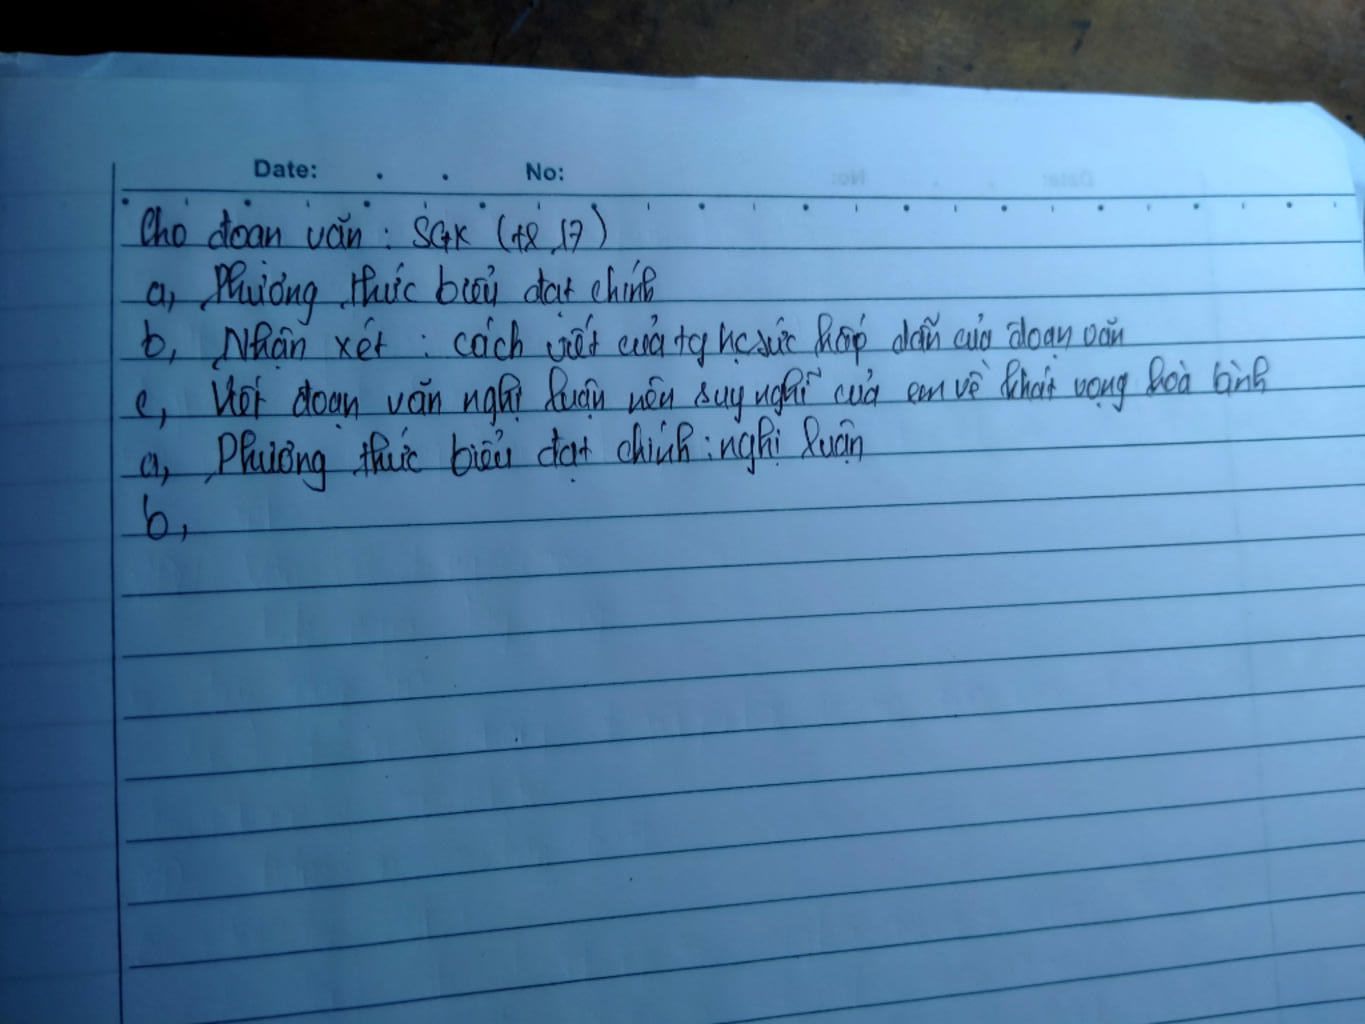 Date: . . No:
Cho đoạn văn : SGK (t8, 17)
a, Phương thức biểu đạt chính
b, Nhận xét : cách viết của tg sức hấp dẫn của đoạn văn
c, Viết đoạn văn nghị luận nêu suy nghĩ của em về khát vọng hoà bình
a, Phương thức biểu đạt chính : nghị luận
b,